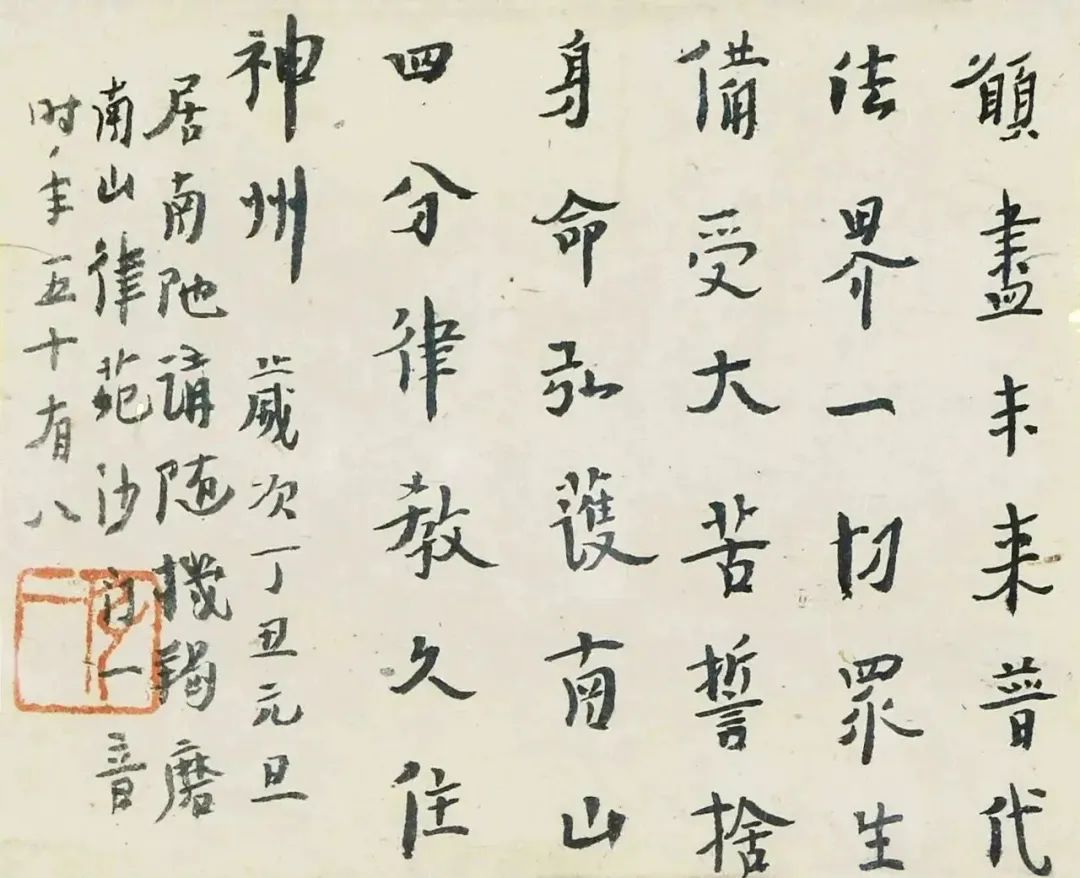 願盡未来普代
法界一切眾生
備受大苦誓捨
身命弘護南山
四分律教久住
神州 歲次丁丑元旦
居南陀講随機羯磨
南山律苑沙門一音
时年五十有八
弘一